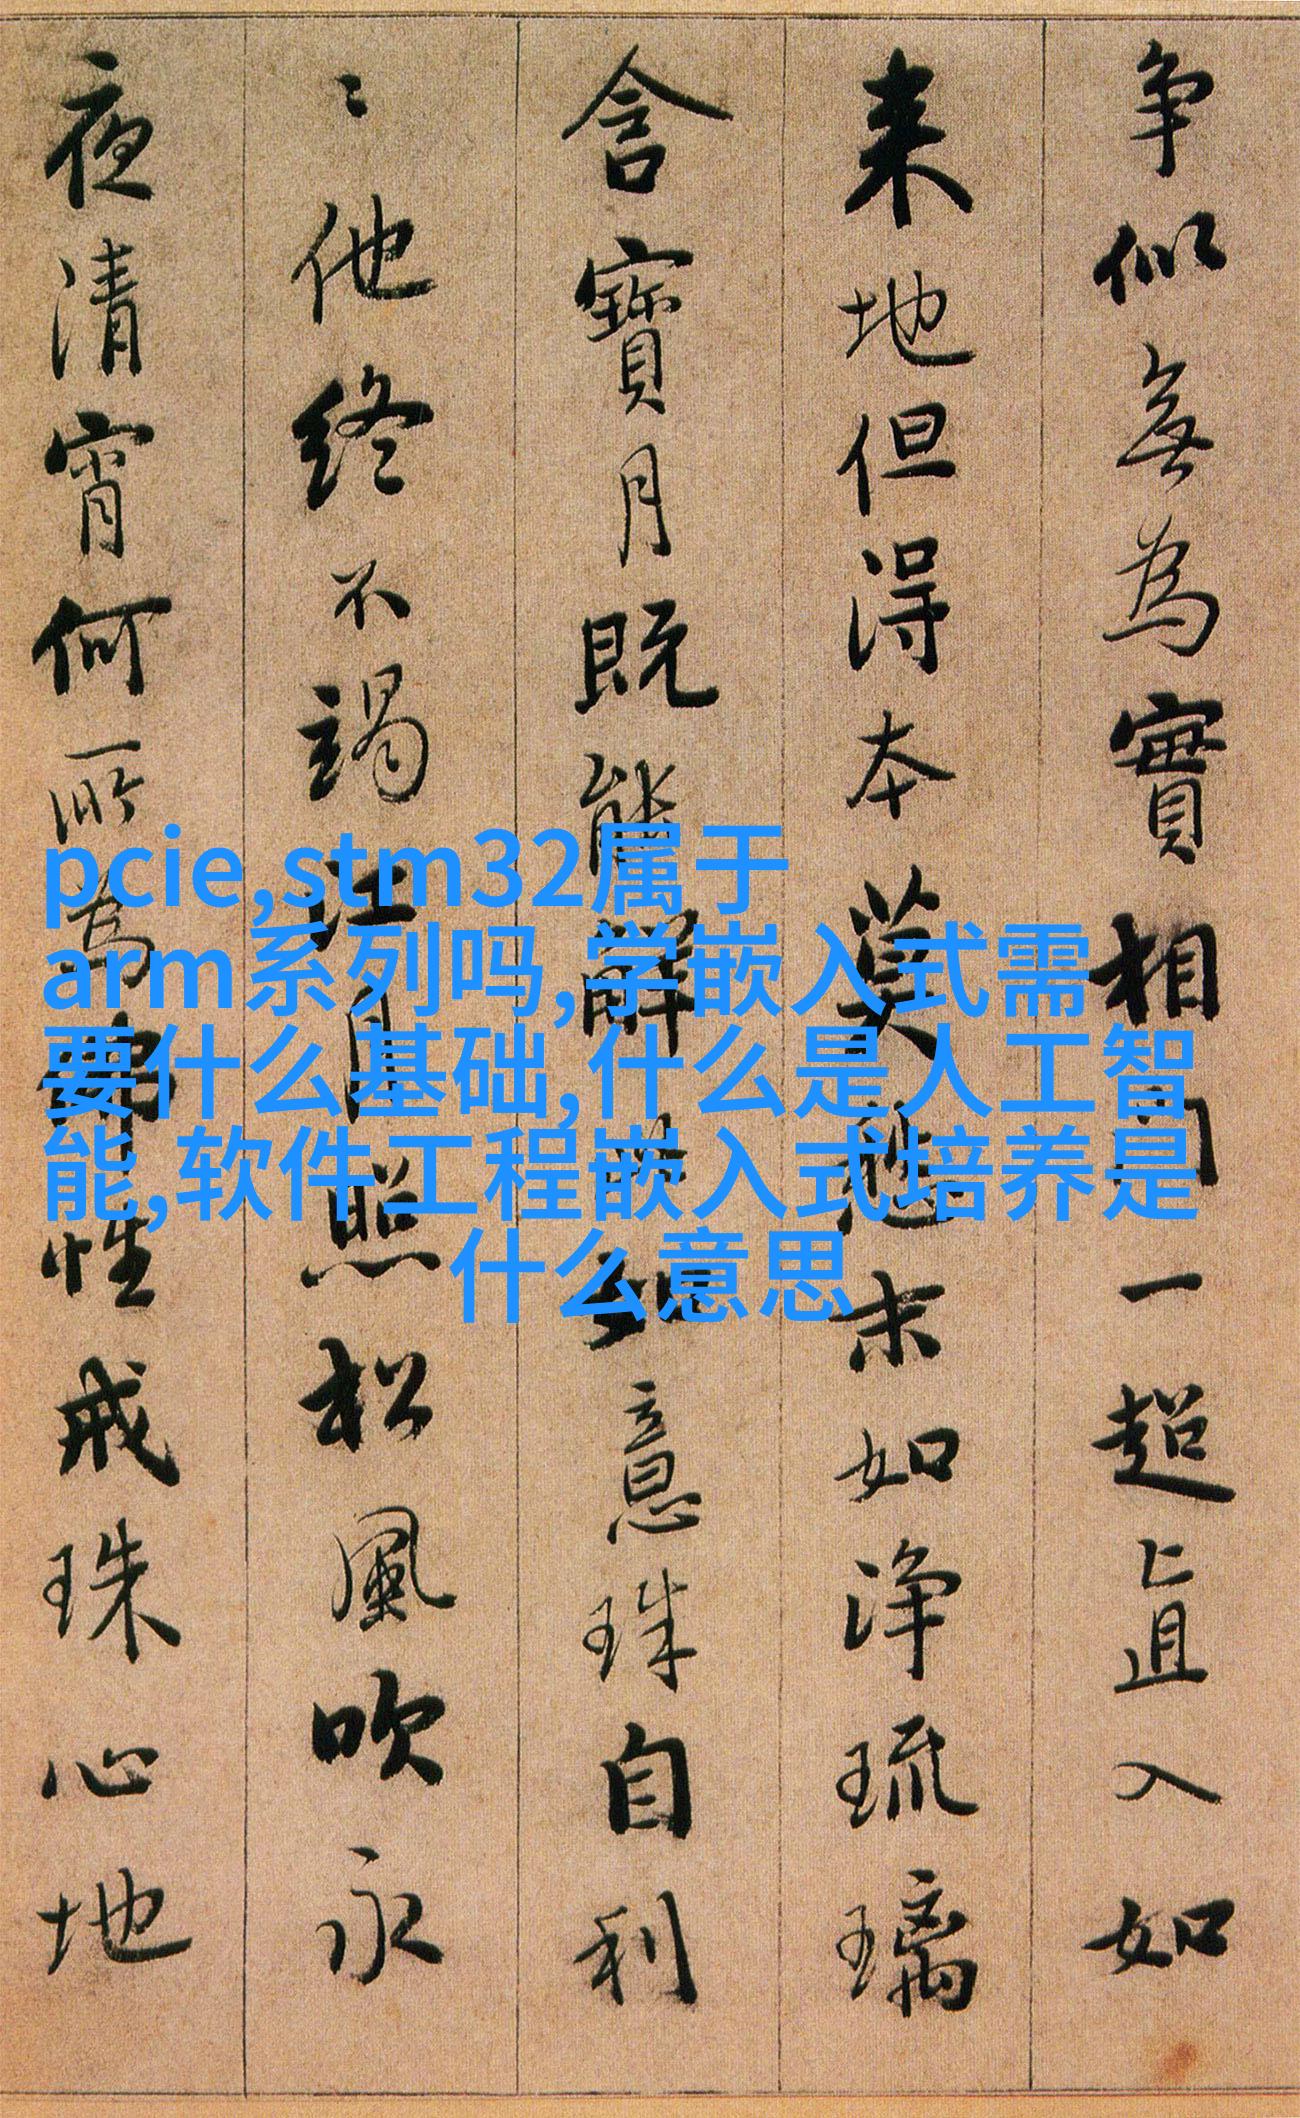 争似無為實相門一超直入如
来地但得本莫愁末如净琉璃
含寶月既能解此如意珠自利
〻他終不竭江月照松風吹永
夜清宵何所為佛性戒珠心地
pcie,stm32属于
arm系列吗,学嵌入式需
要什么基础,什么是人工智
能,软件工程嵌入式培养是
什么意思